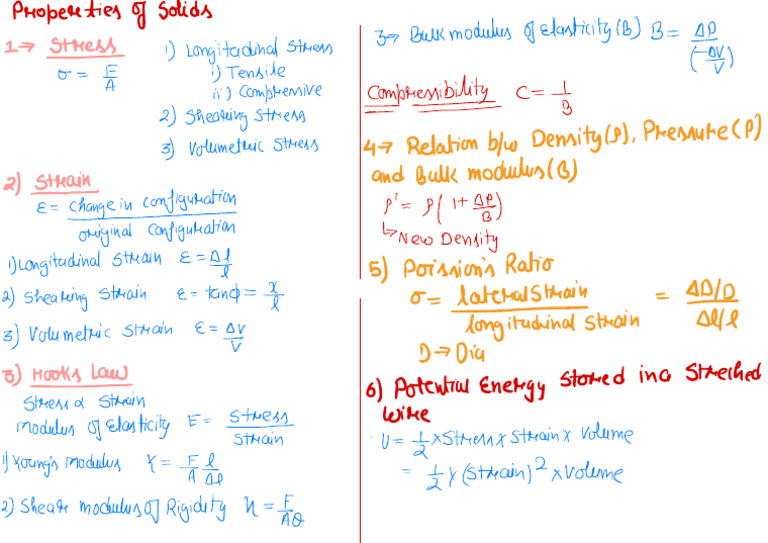 Properties of Solids
1→ Stress
σ = F/A
i) Longitudinal Stress
i) Tensile
ii) Compressive
2) Shearing Stress
3) Volumetric Stress
2) Strain
ε = change in configuration / original configuration
1) Longitudinal Strain ε = Δl/l
2) Shearing Strain ε = tanϕ = x/l
3) Volumetric Strain ε = ΔV/V
3) Hooks Law
Stress α Strain
modulus of Elasticity E = Stress/Strain
1) Young's modulus Y = F/A l/Δl
2) Shear modulus of Rigidity η = F/Aθ
3→ Bulk modulus of Elasticity (B) B = ΔP/(-ΔV/V)
Compressibility C = 1/B
4→ Relation b/w Density(ρ), Pressure(P)
and Bulk modulus(B)
ρ' = ρ(1+ΔP/B)
↳ New Density
5) Poission's Ratio
σ = lateral Strain / longitudinal Strain = ΔD/D / Δl/l
D → Dia
6) Potential Energy Stored in a Streched
Wire
U = 1/2 x Stress x Strain x Volume
= 1/2 Y (Strain)² x Volume